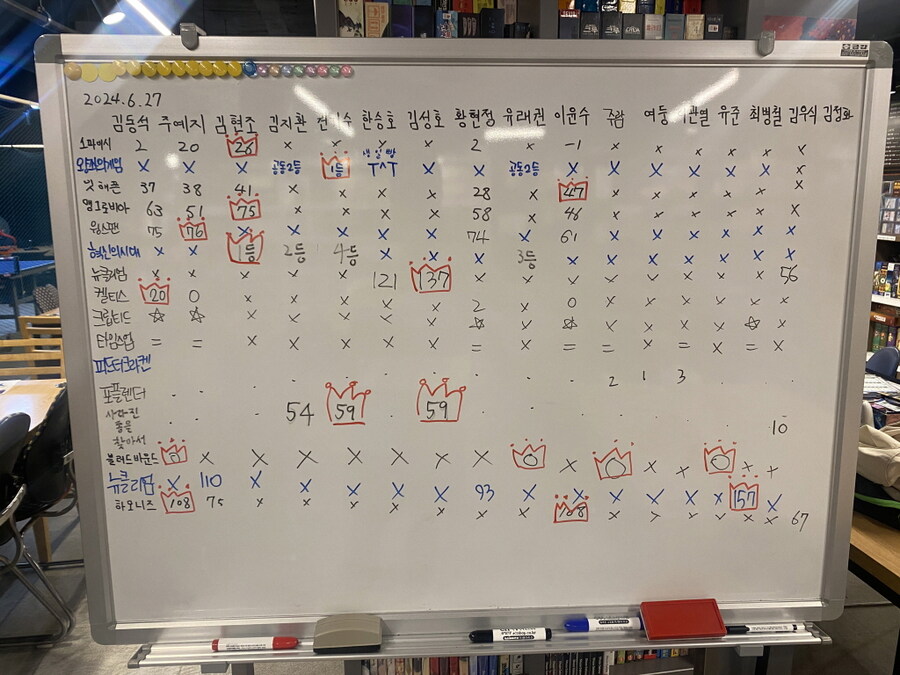 2024.6.27
김동석 주예지 김현조 김지환 한승호 김성호 황현정 유래권 이윤수 주람 여둥 유준 최병철 김우식 김정화
2 20 28 x x x x x 2 x -1 x x x x x x
X X X 공동2등 1등 냉일빵 ㅜㅅㅜ X X 공동2등 X X X X X X x
37 38 41 x x x x 28 x 47 x x x x x x
63 51 75 x x x x 58 x 46 x x x x x x
윙스팬 75 76 X X X X X 74 X 61 X X X X X X
혁신의시대 1등 2등 4등 X X X 3등 X X X X X X X
뉴클리엄 x x x x x x 121 137 x x x x x x x x 56
켈티스 20 0 x x x x x 2 x 0 x x x x x x
크립티드 ☆ ☆ x x x x x ☆ x ☆ x x x x ☆ x
타임스업 = = x x x x x = x = = x = x = x
피드더크라켄
포플렌더 . . . . . . . . 2 1 3 . . .
사라진 동물 찾아서 . . . 54 59 . 59 . . . . . . . . 10
블러드바운드 0 x x X X X X X 0 x 0 x x 0 x x
뉴클리엄 X 110 X X X X X 93 X X X X X X 157 X
하모니즈 108 75 x x x x x x x 108 x x x x x x 67